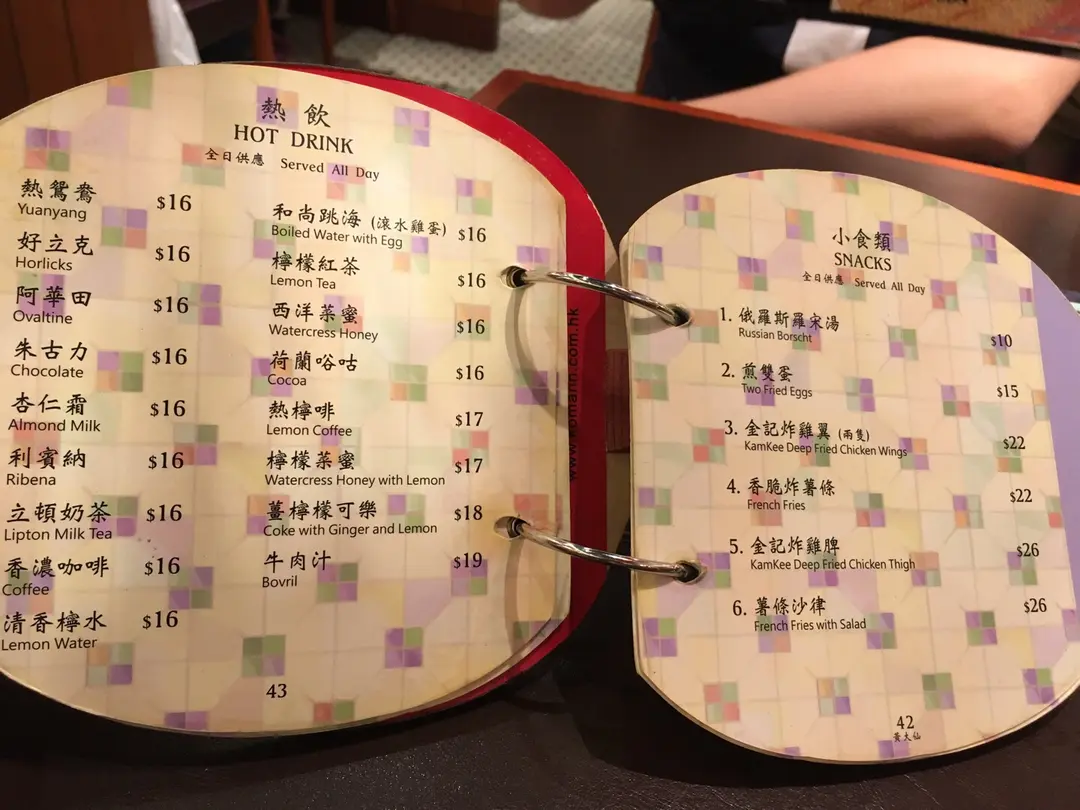 熱 飲
HOT DRINK
全日供應 Served All Day
熱鴛鴦 $16
Yuanyang
好立克 $16
Horlicks
阿華田 $16
Ovaltine
朱古力 $16
Chocolate
杏仁霜 $16
Almond Milk
利賓納 $16
Ribena
立頓奶茶 $16
Lipton Milk Tea
香濃咖啡 $16
Coffee
清香檸水 $16
Lemon Water
和尚跳海 (滾水雞蛋) $16
Boiled Water with Egg
檸檬紅茶 $16
Lemon Tea
西洋菜蜜 $16
Watercress Honey
荷蘭唂咕 $16
Cocoa
熱檸啡 $17
Lemon Coffee
檸檬菜蜜 $17
Watercress Honey with Lemon
薑檸檬可樂 $18
Coke with Ginger and Lemon
牛肉汁 $19
Bovril
43
小食類
SNACKS
全日供應 Served All Day
1. 俄羅斯羅宋湯 $10
Russian Borscht
2. 煎雙蛋 $15
Two Fried Eggs
3. 金記炸雞翼 (兩隻) $22
KamKee Deep Fried Chicken Wings
4. 香脆炸薯條 $22
French Fries
5. 金記炸雞脾 $26
KamKee Deep Fried Chicken Thigh
6. 薯條沙律 $26
French Fries with Salad
42
黃大仙